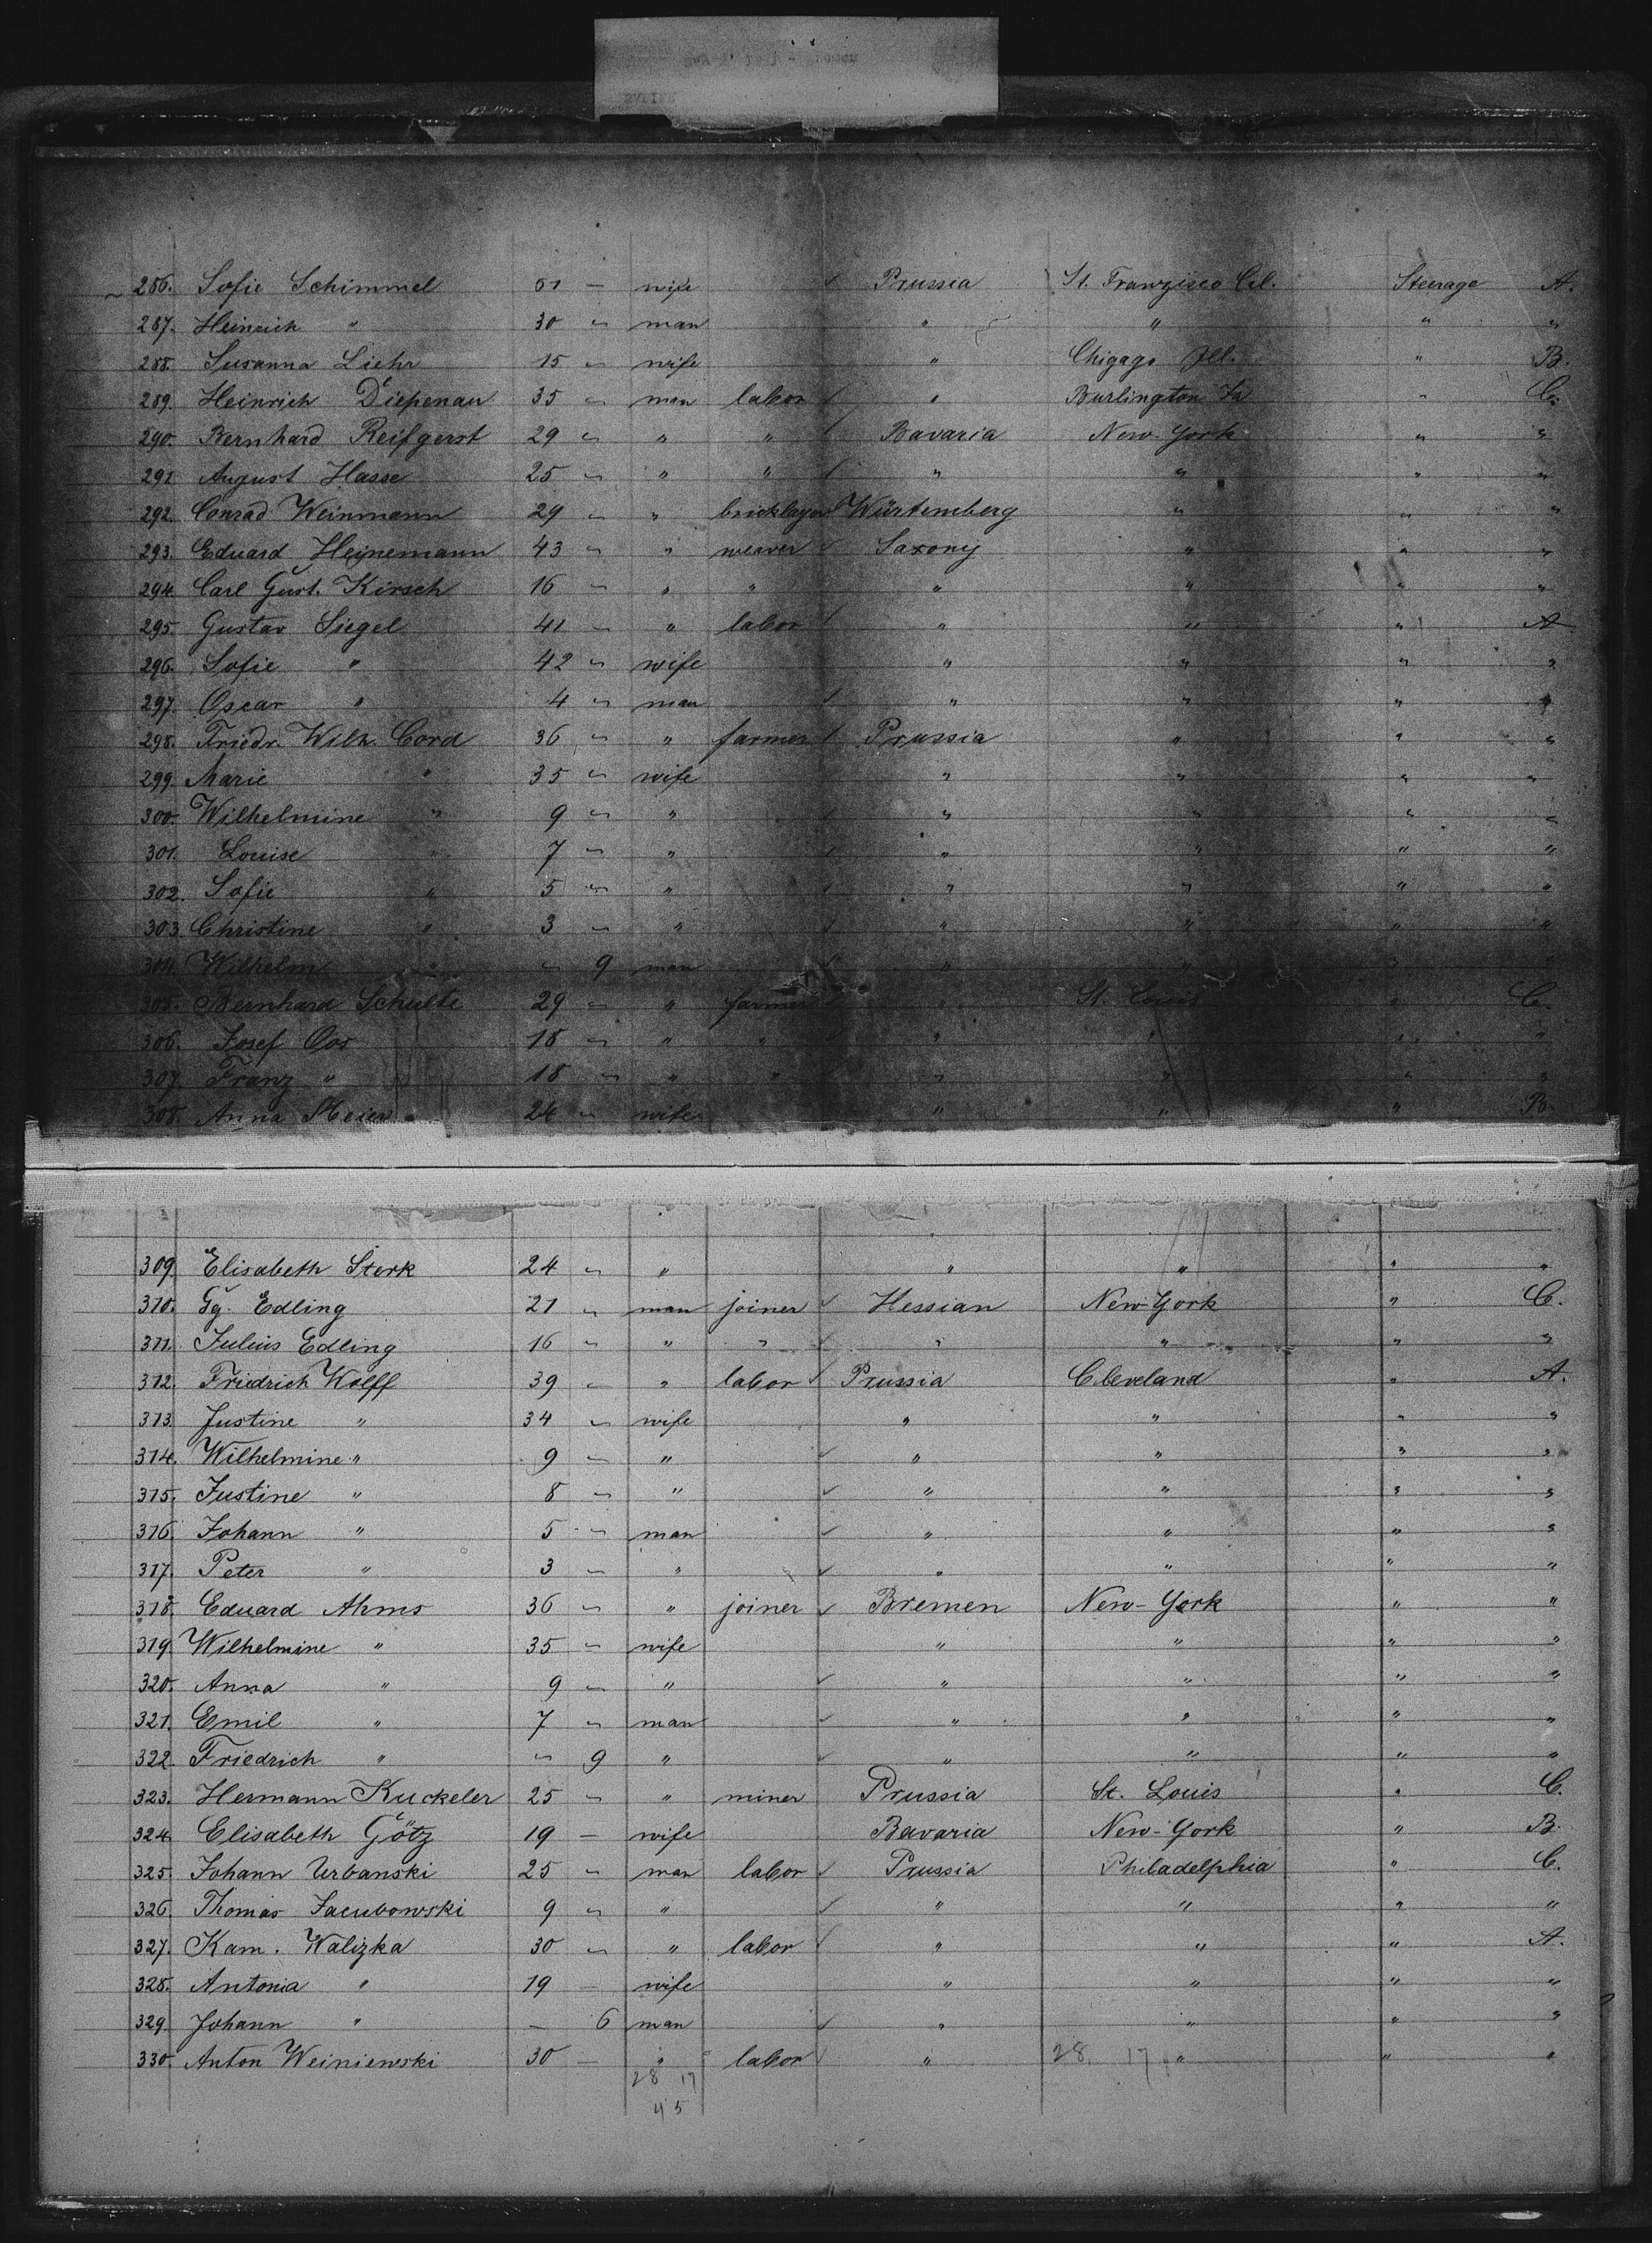 286. Sofie Schimmel 51 — wife Prussia St. Franzisco Cal. Steerage A.
287. Heinrich " 30 " man " " " "
288. Susanna Liehr 15 " wife " Chigago Ill. " B.
289. Heinrich Diepenau 35 " man labor " Burlington Ia " C.
290. Bernhard Reifgerst 29 " " " Bavaria New York " "
291 August Hasse 25 " " " " " " "
292. Conrad Weinmann 29 " " bricklayer Würtemberg " " "
293. Eduard Heinemann 43 " " weaver Saxony " " "
294. Carl Gust. Kirsch 16 " " " " " " "
295. Gustav Siegel 41 " " labor " " " A
296. Sofie " 42 " wife " " " "
297. Oscar " 4 " man " " " "
298. Friedr. Wilh. Cord 36 " " farmer Prussia " " "
299. Marie " 35 " wife " " " "
300. Wilhelmine " 9 " " " " " "
301. Louise " 7 " " " " " "
302. Sofie " 5 " " " " " "
303. Christine " 3 " " " " " "
304. Wilhelm " " 9 man " " " "
305. Bernhard Schulte 29 " " farmer " St. Louis " C.
306. Josef Oos 18 " " " " " " "
307. Franz " 18 " " " " " " "
308. Anna Meier 24 " wife " " " B.
309. Elisabeth Sterk 24 " " " " " "
310. Gg. Edling 21 " man joiner Hessian New York " C.
311. Julius Edling 16 " " " " " " "
312. Friedrich Wolff 39 " " labor Prussia Cleveland " A.
313. Justine " 34 " wife " " " "
314. Wilhelmine " 9 " " " " " "
315. Justine " 8 " " " " " "
316. Johann " 5 " man " " " "
317. Peter " 3 " " " " " "
318. Eduard Ahms 36 " " joiner Bremen New-York " "
319. Wilhelmine " 35 " wife " " " "
320. Anna " 9 " " " " " "
321. Emil " 7 " man " " " "
322. Friedrich " " 9 " " " " "
323. Hermann Kuckeler 25 " " miner Prussia St. Louis " C.
324. Elisabeth Götz 19 — wife Bavaria New-York " B.
325. Johann Urbanski 25 " man labor Prussia Philadelphia " C.
326. Thomas Jacubowski 9 " " " " " "
327. Kam. Walizka 30 " " labor " " " A.
328. Antonia " 19 — wife " " " "
329. Johann " — 6 man " " " "
330. Anton Weiniewski 30 — " labor " 28 17 " " "
28 17
45